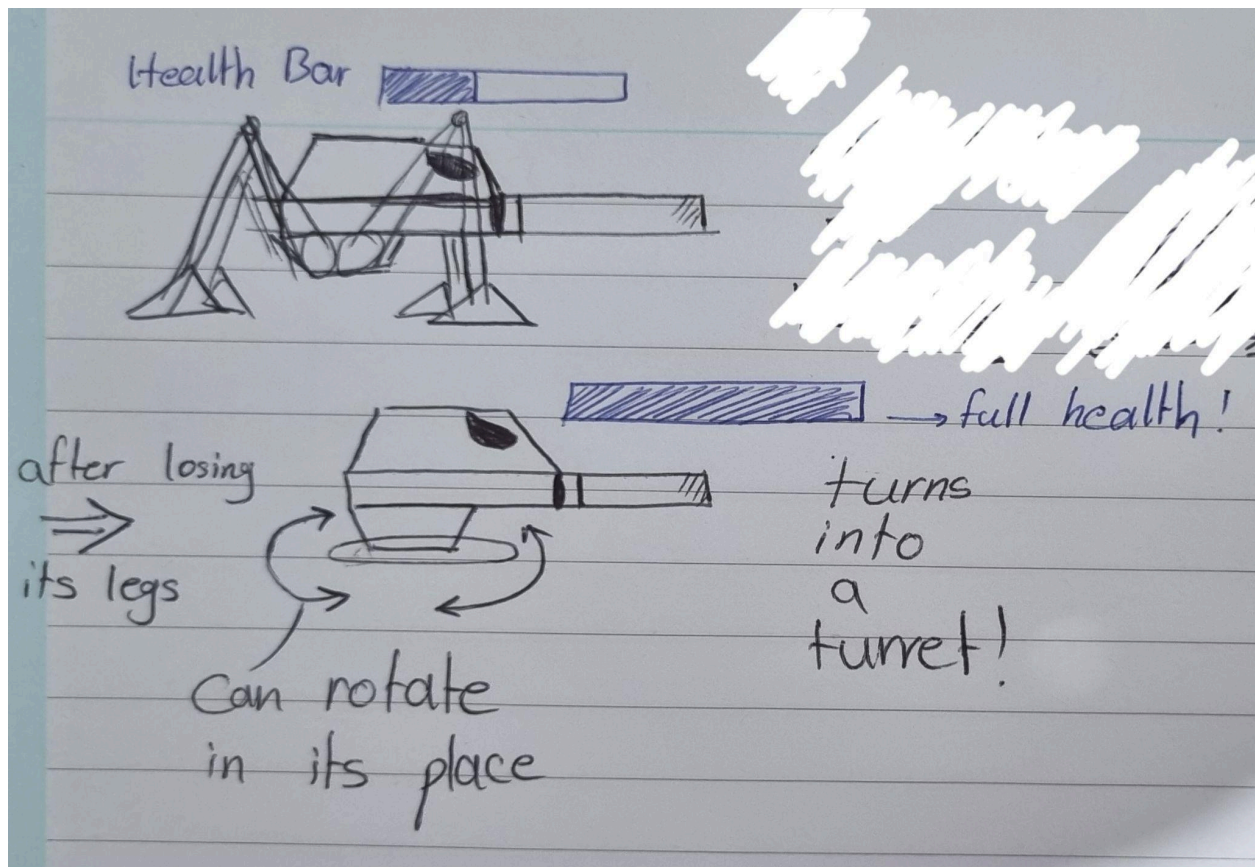 Health Bar
full health!
after losing
its legs
turns
into
a
turret!
Can rotate
in its place